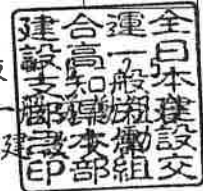 全日本建設交
運一般労働組
合高知県本部
建設支部之印
建